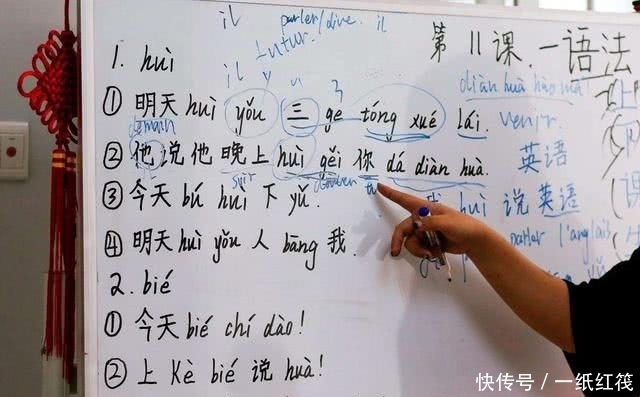 il parler/dire. il
futur.
第11课.一语法
1. huì
il
diàn huà hào mǎ
① 明天 huì yǒu 三 ge tóng xué lái. venir.
demain
② 他说他晚上 huì gěi 你 dá diàn huà. 英语
soir tu
③ 今天 bú huì 下 yǔ. 我 huì 说英语
parler l'anglais
④ 明天 huì yǒu 人 bāng 我.
2. bié
① 今天 bié chí dào!
② 上 Kè bié 说 huà!
快传号/一纸红筏